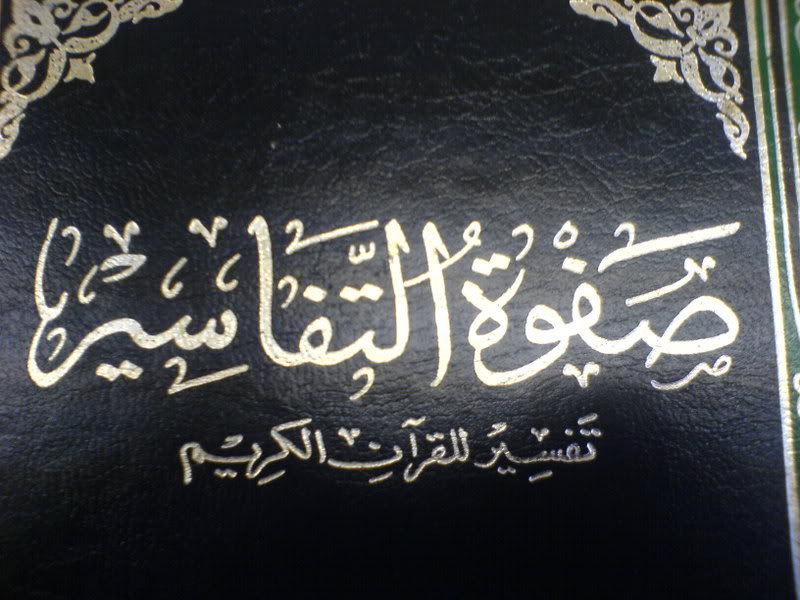 صَفْوَةُ التَّفَاسِير
تَفْسِيرٌ للقرآنِ الكَرِيمِ